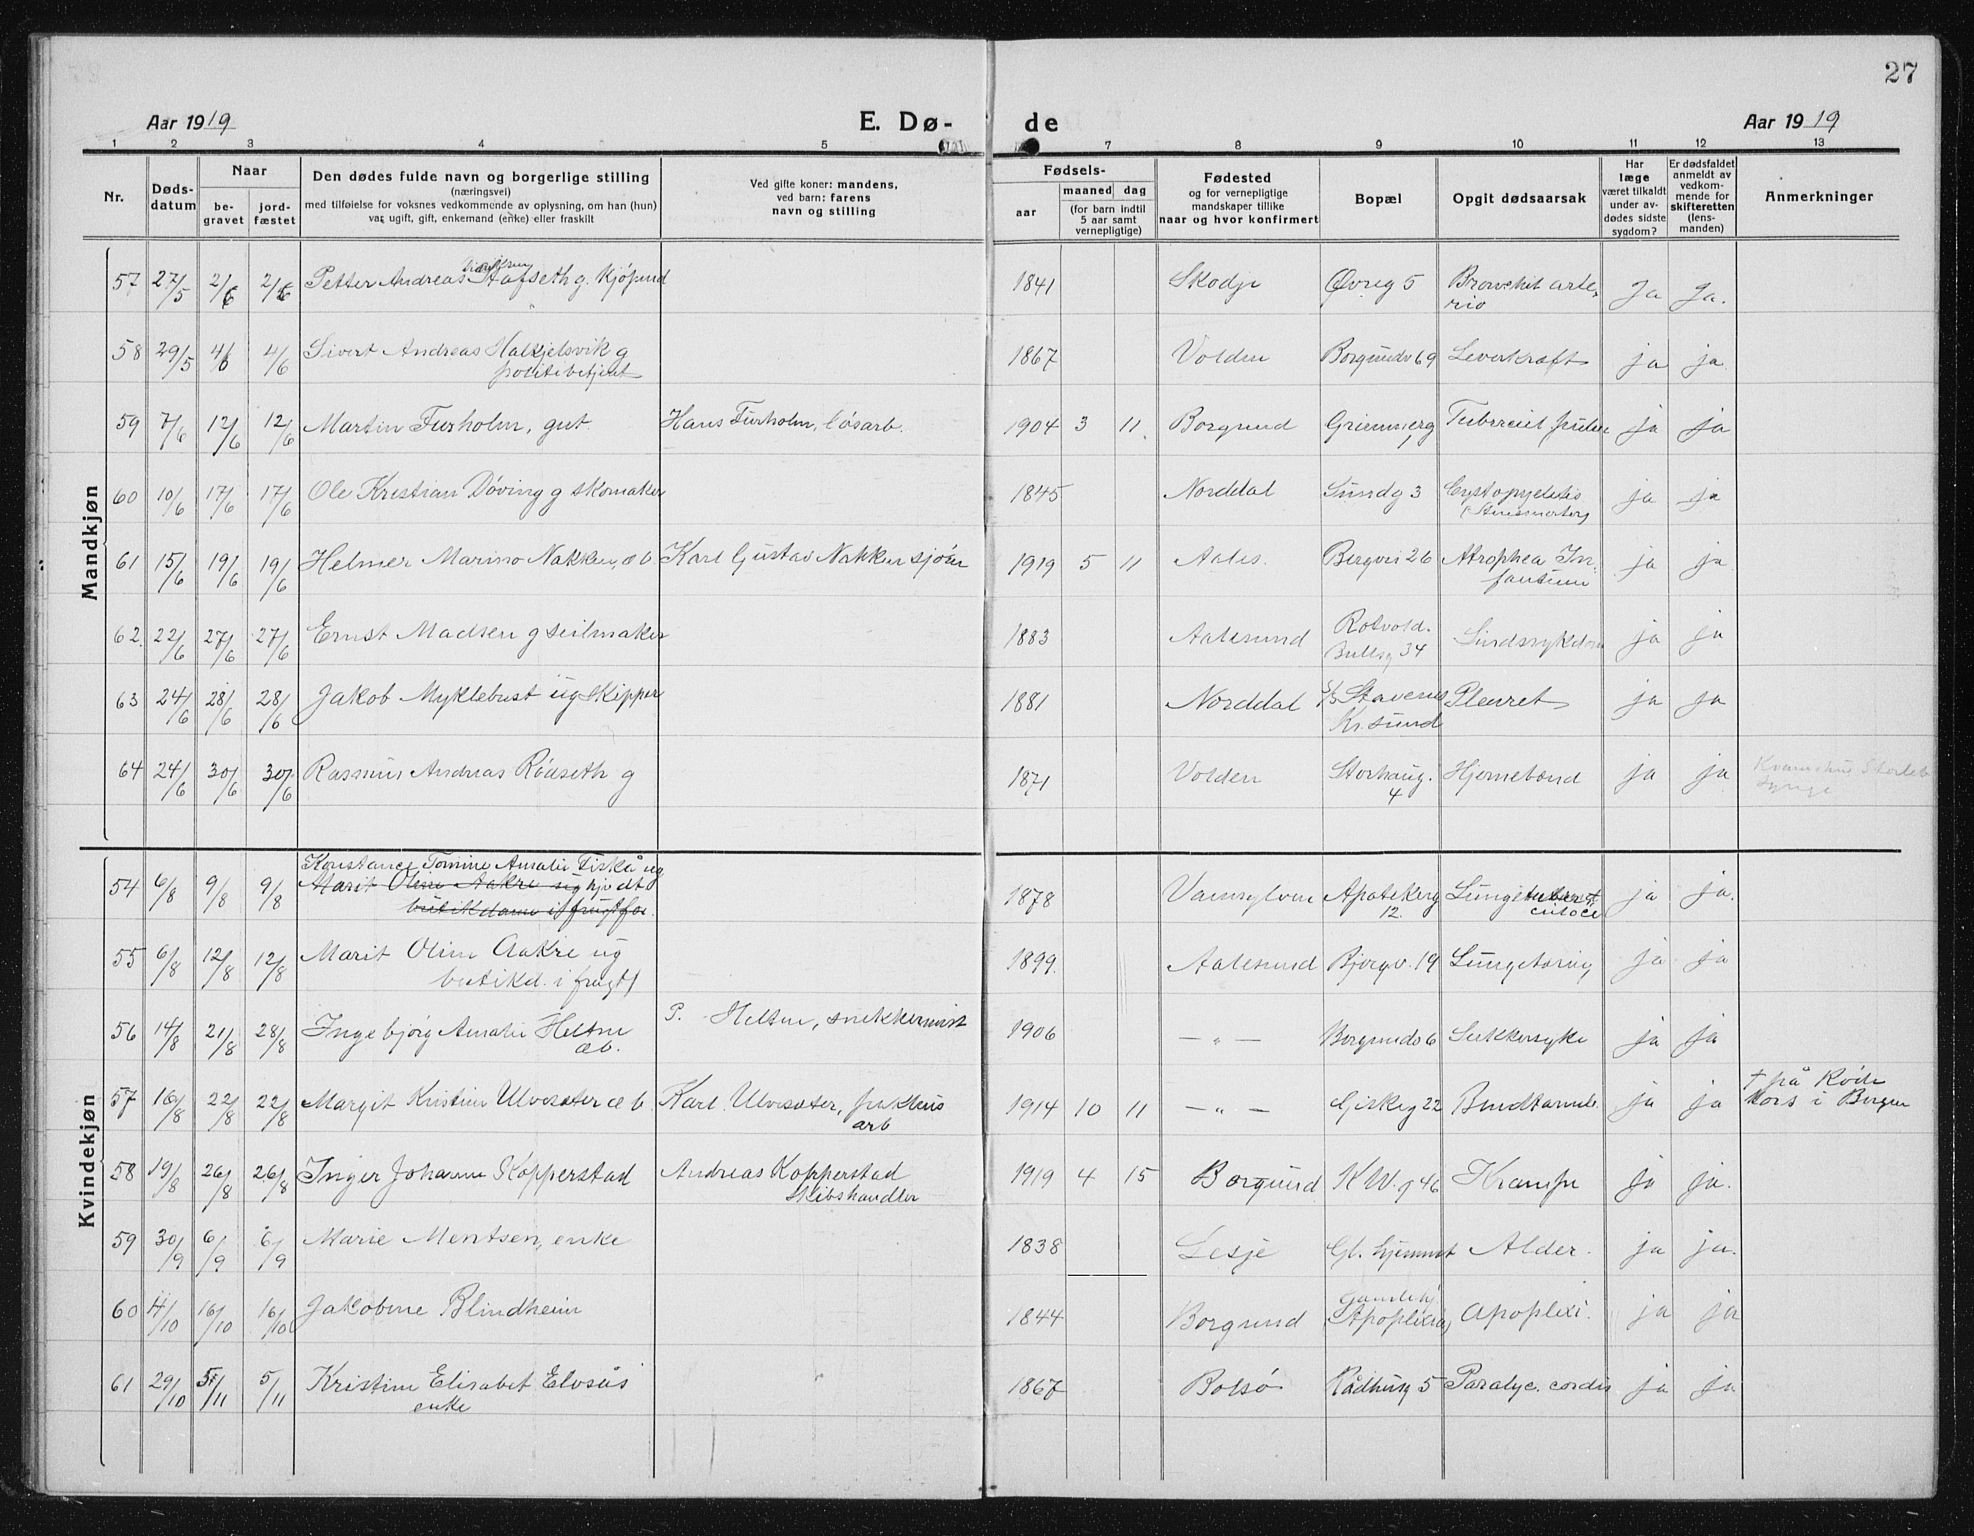 27
Aar 1919 E. Dø- de Aar 1919
1 2 3 4 5 7 8 9 10 11 12 13
Nr.
Døds-
datum
Naar
be-
gravet
jord-
fæstet
Den dødes fulde navn og borgerlige stilling
(næringsvei)
med tilføielse for voksnes vedkommende av oplysning, om han (hun)
var ugift, gift, enkemand (enke) eller fraskilt
Ved gifte koner: mandens,
ved barn: farens
navn og stilling
Fødsels-
aar
maaned dag
(for barn indtil
5 aar samt
vernepligtige)
Fødested
og for vernepligtige
mandskaper tillike
naar og hvor konfirmert
Bopæl
Opgit dødsaarsak
Har
læge
været tilkaldt
under av-
dødes sidste
sygdom?
Er dødsfaldet
anmeldt av
vedkom-
mende for
skifteretten
(lens-
manden)
Anmerkninger
Mandkjøn
57 27/5 2/6 2/6 Petter Andreas Stafseth g. kjøpmd 1841 Skodje Øvreg 5 Bronchit arte-
rio Ja Ja.
58 29/5 4/6 4/6 Sivert Andreas Halkjelsvik g 1867 Volden Borgundv 69 Leverkræft ja ja
politibetjent
59 7/6 12/6 12/6 Martin Furholm, gut. Hans Furholm, løsarb. 1904 3 11 Borgund Grimmerg 1 ja ja
60 10/6 17/6 17/6 Ole Kristian Døving g skomaker 1845 Norddal Sundg 3 Cystopyelitis ja ja
61 15/6 19/6 19/6 Helmer Marino Nakken, æ b. Karl Gustav Nakken sjøm 1919 5 11 Aales. Bergvei 26 Atrophea In-
fantium ja ja
62 22/6 27/6 27/6 Ernst Madsen g seilmaker 1883 Aalesund Rotvold.
Bullsg 34 Sindssykdom ja ja
63 24/6 28/6 28/6 Jakob Myklebust ug skipper 1881 Norddal S/S Stavenes
Kr.sund Pleurit ja ja
64 24/6 30/6 30/6 Rasmus Andreas Rødseth g 1871 Volden Storhaug.
4 Hjerneblød ja ja
Kvindekjøn
54 6/8 9/8 9/8 Konstance Tomine Amalie Fiskå ug
Marit Oline Aakre ug hjv dt
butikdame i frugtfor. 1878 Vannylven Apotekerg
12. Lungetuber
culose ja ja.
55 6/8 12/8 12/8 Marit Oline Aakre ug 1899. Aalesund Bjorgv. 19 Lungetæring ja ja
butikd. i frugtf
56 14/8 21/8 28/8 Ingebjørg Amalie Heltne
æb. P. Heltne, snekkermst 1906 — " — Borgundv 6 Sukkersyke ja ja
57 16/8 22/8 22/8 Margit Kristine Ulvesæter æ b Karl Ulvesæter, pakhus
arb 1914 10 11 — " — Giskeg 22 ja ja † på Røde
Kors i Bergen
58 19/8 26/8 26/8 Inger Johanne Kopperstad Andreas Kopperstad
Skibshandler 1919 4 15 Borgund K W. g 46 Krampe ja ja.
59 30/9 6/9 6/9 Marie Mentsen, enke 1838 Lesje Gl. hjemmet Alder. ja ja.
60 11/10 16/10 16/10 Jakobine Blindheim 1844 Borgund Gamlehj Apoplexi. ja ja
61 29/10 5/11 5/11 Kristine Elisabet Elvsås
enke 1867 Bolsø Rådhusg 5 Paralyc. cordis ja ja